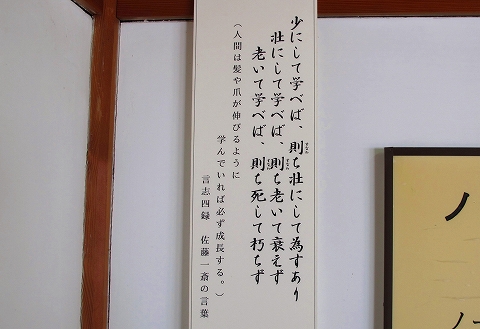 少にして学べば、則ち壮にして為すあり
壮にして学べば、則ち老いて衰えず
老いて学べば、則ち死して朽ちず
（人間は髪や爪が伸びるように
学んでいれば必ず成長する。）
言志四録　佐藤一斎の言葉
ノ
ノー